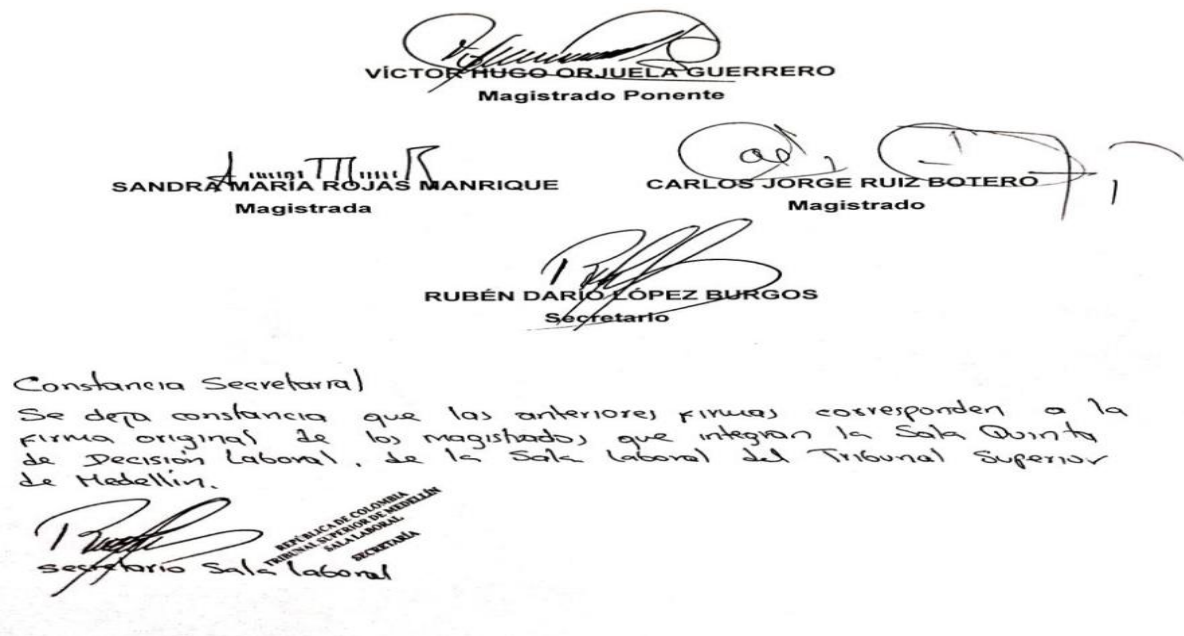 VÍCTOR HUGO ORJUELA GUERRERO
Magistrado Ponente
SANDRA MARÍA ROJAS MANRIQUE CARLOS JORGE RUIZ BOTERO
Magistrada Magistrado
RUBÉN DARÍO LÓPEZ BURGOS
Secretario
Constancia Secretarial
Se deja constancia que las anteriores firmas corresponden a la
firma original de los magistrados que integran la Sala Quinta
de Decisión Laboral, de la Sala Laboral del Tribunal Superior
de Medellín.
REPÚBLICA DE COLOMBIA
TRIBUNAL SUPERIOR DE MEDELLÍN
SALA LABORAL
SECRETARÍA
Secretario Sala Laboral